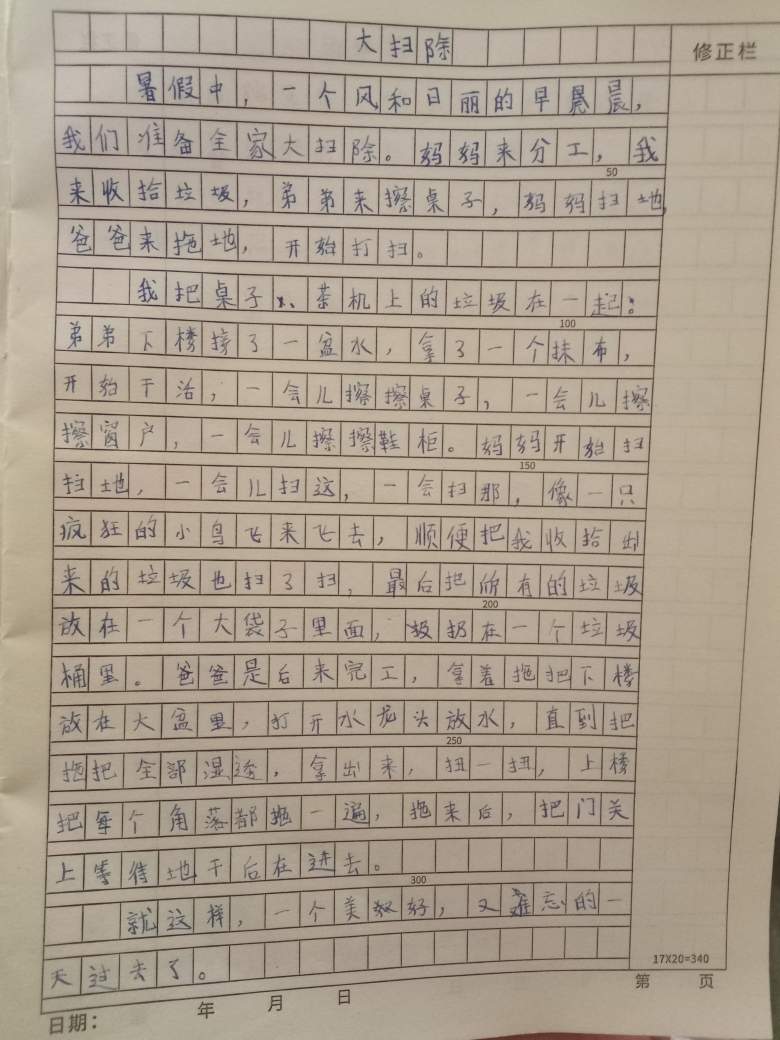 大扫除
修正栏
暑假中，一个风和日丽的早晨，
我们准备全家大扫除。妈妈来分工，我
50
来收拾垃圾，弟弟来擦桌子，妈妈扫地，
爸爸来拖地，开始打扫。
我把桌子、茶机上的垃圾在一起；
100
弟弟下楼接了一盆水，拿了一个抹布，
开始干活，一会儿擦擦桌子，一会儿擦
擦窗户，一会儿擦擦鞋柜。妈妈开始扫
150
扫地，一会儿扫这，一会扫那，像一只
疯狂的小鸟飞来飞去，顺便把我收拾出
来的垃圾也扫了扫，最后把所有的垃圾
200
放在一个大袋子里面，扔在一个垃圾
桶里。爸爸是后来完工，拿着拖把下楼
放在大盆里，打开水龙头放水，直到把
250
拖把全部湿透，拿出来，扭一扭，上楼
把每个角落都拖一遍，拖来后，把门关
上等待地干后在进去。
300
就这样，一个美好，又难忘的一
天过去了。
17X20=340
日期： 年 月 日 第 页